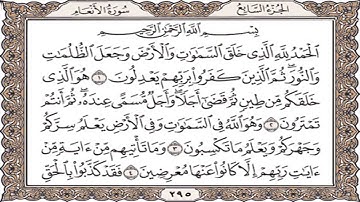 الجزء السابع سورة الأنعام
بِسْمِ اللَّهِ الرَّحْمَٰنِ الرَّحِيمِ
الْحَمْدُ لِلَّهِ الَّذِي خَلَقَ السَّمَٰوَٰتِ وَالْأَرْضَ وَجَعَلَ الظُّلُمَٰتِ
وَالنُّورَ ثُمَّ الَّذِينَ كَفَرُوا بِرَبِّهِمْ يَعْدِلُونَ ١ هُوَ الَّذِي
خَلَقَكُم مِّن طِينٍ ثُمَّ قَضَىٰ أَجَلًا وَأَجَلٌ مُّسَمًّى عِندَهُ ثُمَّ أَنتُمْ
تَمْتَرُونَ ٢ وَهُوَ اللَّهُ فِي السَّمَٰوَٰتِ وَفِي الْأَرْضِ يَعْلَمُ سِرَّكُمْ
وَجَهْرَكُمْ وَيَعْلَمُ مَا تَكْسِبُونَ ٣ وَمَا تَأْتِيهِم مِّنْ ءَايَةٍ مِّنْ
ءَايَٰتِ رَبِّهِمْ إِلَّا كَانُوا عَنْهَا مُعْرِضِينَ ٤ فَقَدْ كَذَّبُوا بِالْحَقِّ
٢٩٥